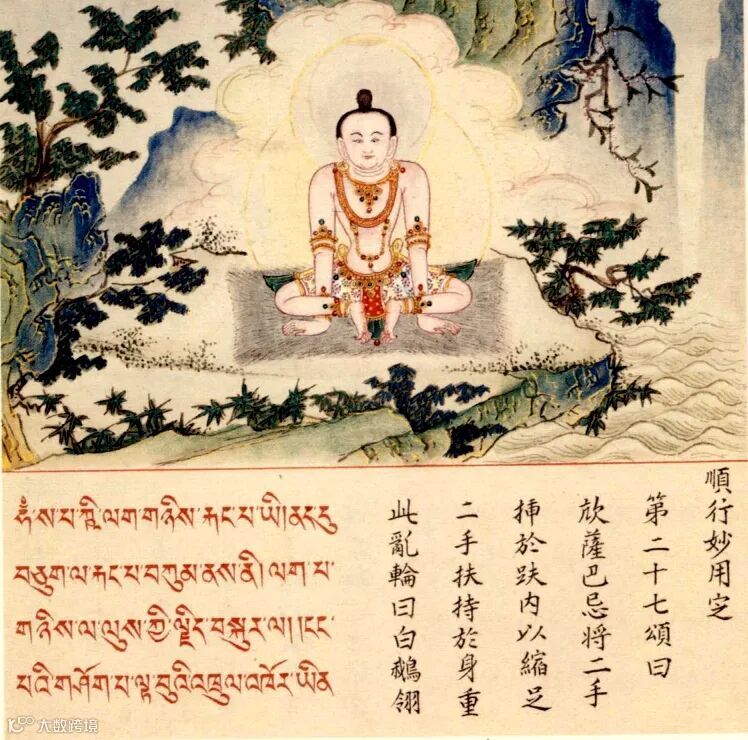 ཧཾ་ས་པ་ཀྵི་ལག་གཉིས་རྐང་པ་ཡི།ནང་དུ
བཅུག་ལ་རྐང་པ་བཀུམ་ནས་ནི། ལག་པ་
གཉིས་ལ་ལུས་ཀྱི་ལྗིད་བསྐུར་ལ།།ངང་
པའི་གཤོག་པ་ལྟ་བུའི་འཁྲུལ་འཁོར་ཡིན
順行妙用定
第二十七頌曰
薩巴忌將二手
挿於趺内以縮足
二手扶持於身重
此亂輪曰白鵝翎
大数跨境